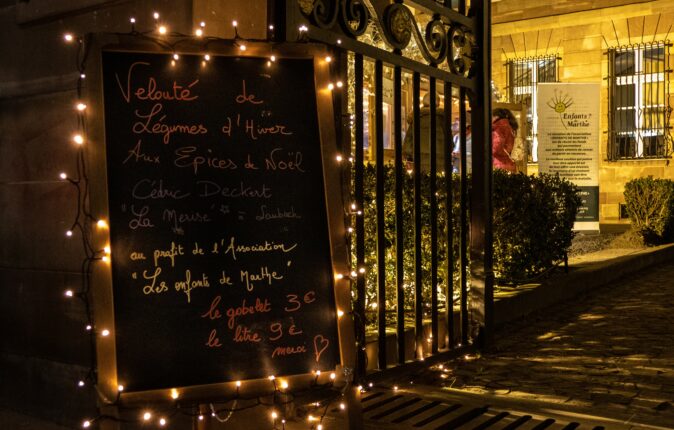 Velouté de
Légumes d'Hiver
Aux Épices de Noël
Cédric Deckert
"La Merise" à Laubach
au profit de l'Association
"Les enfants de Marthe"
le gobelet 3€
le litre 9€
merci
Enfants
de Marthe